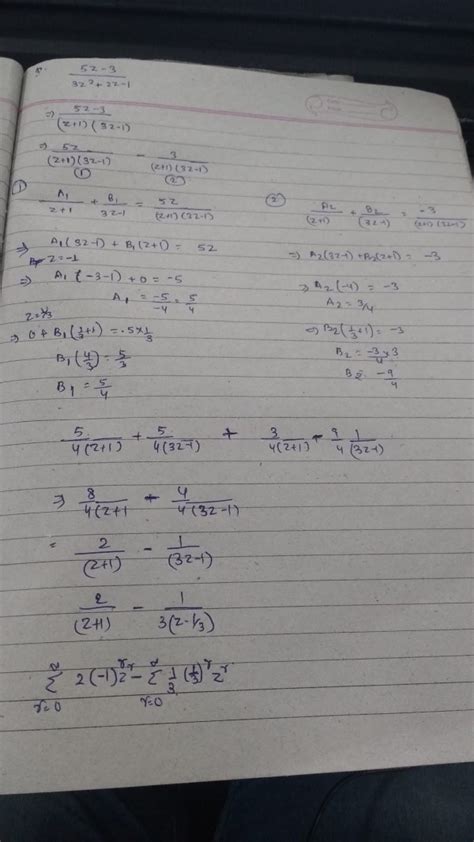 5. (5z-3)/(3z²+2z-1)
⇒ (5z-3)/((z+1)(3z-1))
⇒ 5z/((z+1)(3z-1)) - 3/((z+1)(3z-1))
① ②
① A₁/(z+1) + B₁/(3z-1) = 5z/((z+1)(3z-1))
⇒ A₁(3z-1) + B₁(z+1) = 5z
z=-1
⇒ A₁(-3-1)+0 = -5
A₁ = -5/-4 = 5/4
z=1/3
⇒ 0+B₁(1/3+1) = 5×1/3
B₁(4/3) = 5/3
B₁ = 5/4
② A₂/(z+1) + B₂/(3z-1) = -3/((z+1)(3z-1))
⇒ A₂(3z-1)+B₂(z+1) = -3
⇒ A₂(-4) = -3
A₂ = 3/4
⇒ B₂(1/3+1) = -3
B₂ = -3×3/4
B₂ = -9/4
5/4(z+1) + 5/4(3z-1) + 3/4(z+1) - 9/4 1/(3z-1)
⇒ 8/4(z+1 - 4/4(3z-1)
= 2/(z+1) - 1/(3z-1)
2/(z+1) - 1/3(z-1/3)
∞ ∑ r=0 2(-1)^r z^r - ∞ ∑ r=0 1/3 (1/3)^r z^r